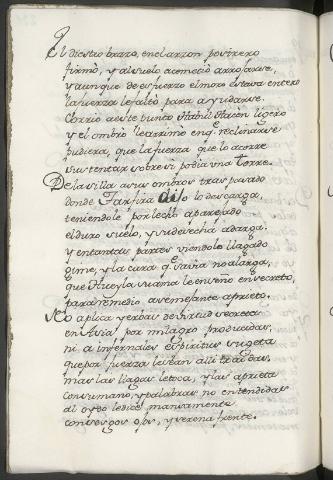 El diestro brazo, en el arzon postrero
firmò, y al suelo acometiò arrojarse,
y aunque de esfuerzo el moro estava entero
la fuerza le faltò para ayudarse.
Corriò a este punto Hazen ligero
y el ombro le arrimò en q̃ reclinarse
pudiera, que la fuerza que lo acorre
sustentar sobre si podia una Torre.
De la silla a sus ombros traspasado
donde Farfira dijo lo descarga,
teniendole por lecho aparejado
el duro suelo, y su derecha adarga.
y en tantas partes viendole llagado
gime, y la cura q̃ savia no alarga,
que su ama le enseñò en secreto,
para remedio a semejante aprieto.
No aplica yerbas de virtud secreta
en Asia por milagro producidas,
ni a infernales espiritus sugeta
que por fuerza le sean alli traidas,
mas las llagas le toca, y las aprieta
con su mano, y palabras no entendidas
al oydo le dice mansamente
con sesgos ojos, y serena frente.